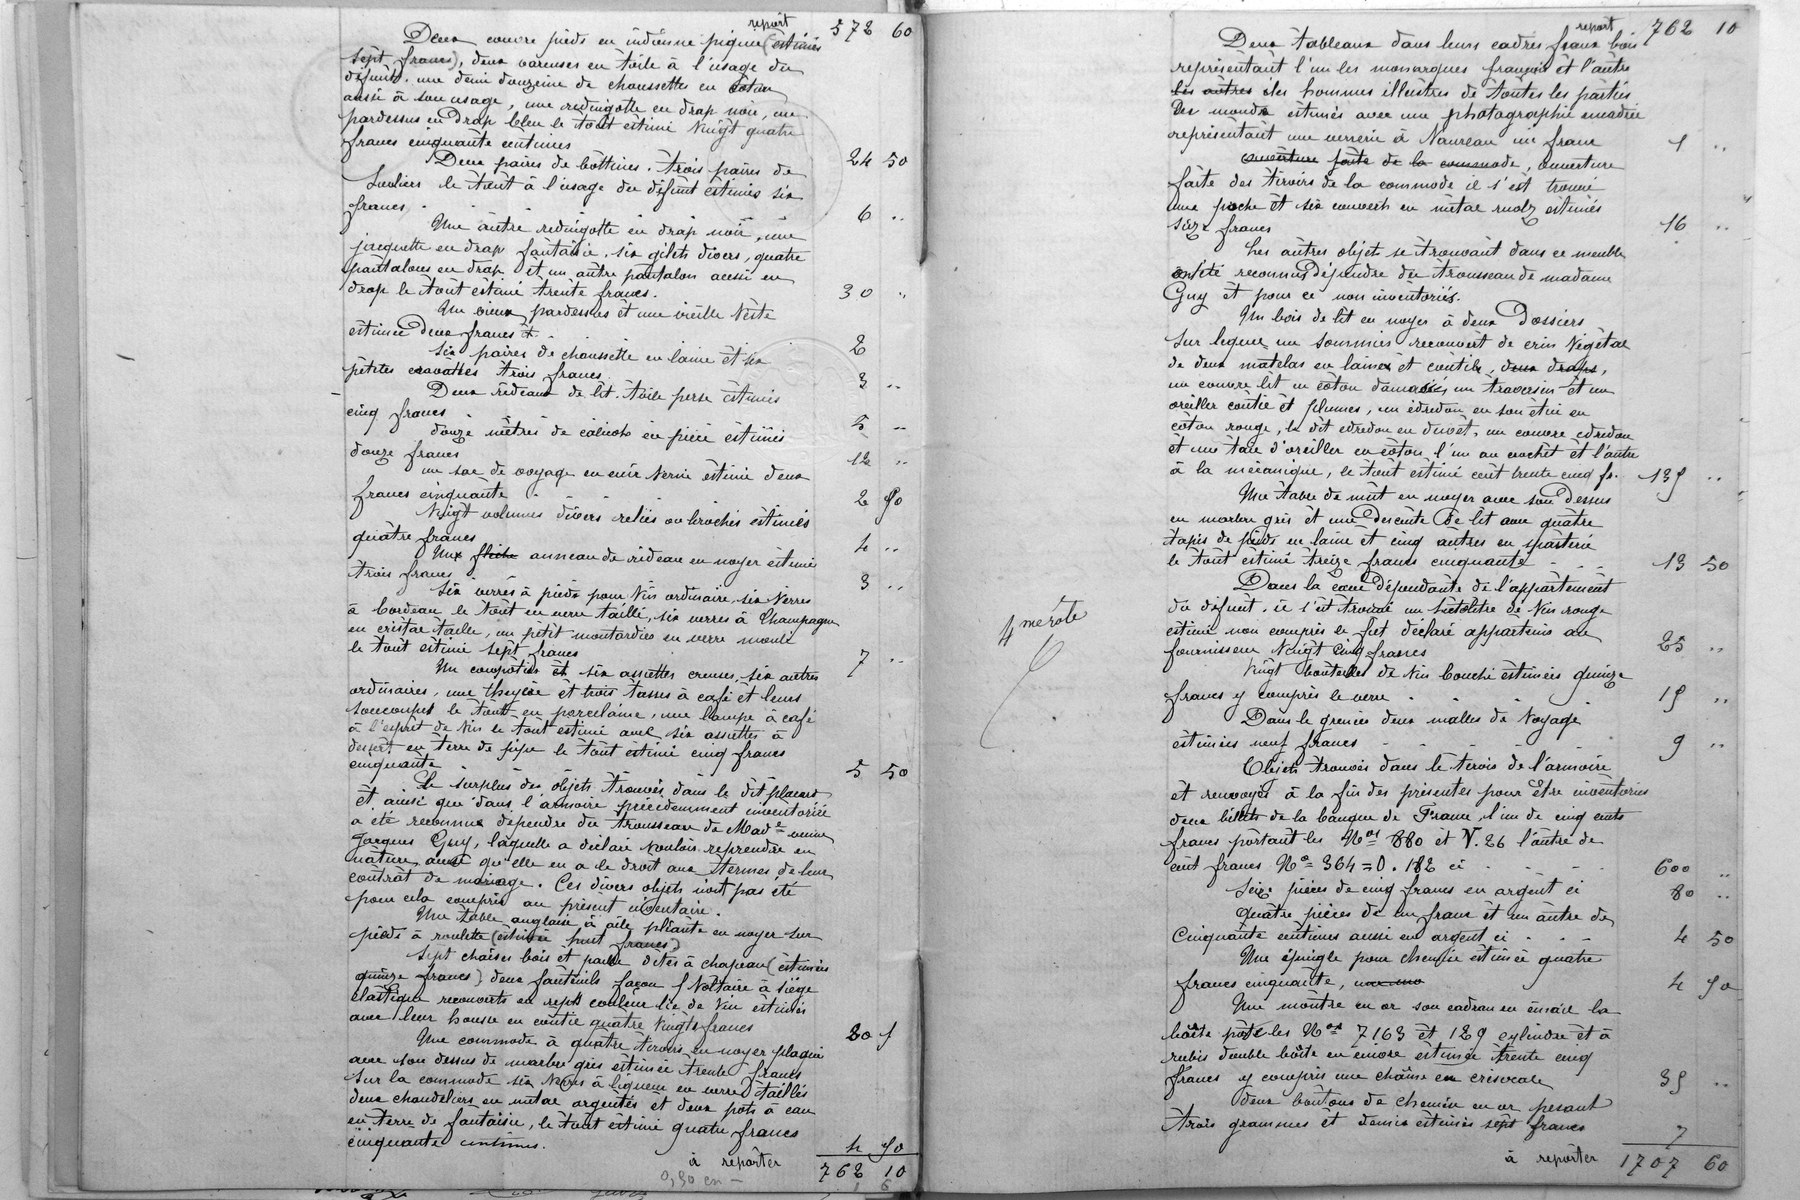 report 572 60
Deux couvre pieds en indienne piquée (estimés
sept francs), deux vareuses en toile à l'usage du
défunt. une demi douzaine de chaussettes en coton
aussi à son usage, une redingotte en drap noir, un
pardessus en Drap bleu le tout estimé Vingt quatre
francs cinquante centimes 24 50
Deux paires de bottines. trois paires de
souliers le tout à l'usage du défunt estimés six
francs . 6 ..
Une autre redingotte en drap noir, une
jaquette en drap fantaisie, six gilets divers, quatre
pantalons en drap et un autre pantalon aussi en
drap le tout estimé trente francs. 30 ..
Un vieux pardessus et une vieille Veste
estimés Deux francs 2
Six paires de chaussette en laine et six
petites cravattes trois francs 3 ..
Deux rideaux de lit. toile perse estimés
cinq francs 5 ..
douze mètres de calicot en pièce estimés
douze francs 12 ..
un sac de voyage en cuir Vernie estimé deux
francs cinquante 2 50
Vingt volumes divers reliés ou brochés estimés
quatre francs 4 ..
Une flèche anneau de rideau en noyer estimés
trois francs 3 ..
Six verres à pieds pour Vin ordinaire, six Verres
à bordeau le tout en verre taillé, six verres à Champagne
en cristal taillé, un petit moutardier en verre moulé
le tout estimé sept francs 7 ..
Un compotier et six assiettes creuses, six autres
ordinaires, une theyère et trois tasses à café et leurs
soucoupes le tout en porcelaine, une lampe à café
à l'esprit de Vin le tout estimé avec six assiettes à
dessert en terre de pipe le tout estimé cinq francs
cinquante 5 50
Le surplus des objets trouvés dans le dit placard
et ainsi que dans l'armoire précédemment inventoriée
a été reconnu dépendre du trousseau de Made veuve
Jacques Guy, laquelle a déclaré vouloir reprendre en
nature ainsi qu'elle en a le droit aux termes de leur
contrat de mariage. Ces divers objets n'ont pas été
pour cela compris au présent inventaire.
Une table anglaise à aile pliante en noyer sur
pieds à roulette (estimée huit francs)
Sept chaises bois et paille dites à chapeau (estimées
quinze francs) deux fauteuils façon Voltaire à siège
élastique recouverts en reps couleur lie de Vin estimés
avec leur housse en coutil quatre Vingts francs 80
Une commode à quatre tiroirs en noyer plaqué
avec son dessus de marbre gris estimée trente francs
Sur la commode six Verres à liqueur en verre taillés
deux chandeliers en métal argentés et deux pots à eau
en terre de fantaisie, le tout estimé quatre francs
cinquante centimes. 4 50
à reporter 762 10
report 762 10
Deux tableaux dans leurs cadres faux bois
représentant l'un les monarques français et l'autre
les autres des hommes illustres de toutes les parties
Du monde estimés avec une photographie encadrée
représentant une verrerie à un franc 1 ..
ouverture faite de la commode, ouverture
faite des tiroirs de la commode il s'est trouvé
une poche et six couverts en métal ruolz estimés
seize francs 16 ..
Les autres objets se trouvant dans ce meuble
ont été reconnus dépendre du trousseau de madame
Guy et pour ce non inventoriés.
Un bois de lit en noyer à deux Dossiers
sur lequel un sommier recouvert de crin Végétal
de deux matelas en laine et coutil, deux draps,
un couvre lit en coton damassé, un traversin et un
oreiller coutil et plumes, un édredon en son étui en
coton rouge, le dit edredon en duvet, un couvre edredon
et une taie d'oreiller en coton, l'un au crochet et l'autre
à la mécanique, le tout estimé cent trente cinq fs. 135 ..
Une table de nuit en noyer avec son Dessus
en marbre gris et une Descente De lit avec quatre
tapis de pieds en laine et cinq autres en sparterie
le tout estimé treize francs cinquante 13 50
Dans la cave dépendante de l'appartement
du défunt. il s'est trouvé un hectolitre de Vin rouge
estimé non compris le fut déclaré appartenir au
fournisseur Vingt Cinq francs 25 ..
Vingt bouteilles de Vin bouché estimées quinze
francs y compris le verre 15 ..
Dans le grenier deux malles de Voyage
estimées neuf francs 9 ..
Objets trouvés dans le tiroir de l'armoire
et renvoyés à la fin des présentes pour Etre inventoriés
deux billets de la banque de France, l'un de cinq cents
francs portant les Nos 880 et V. 26 l'autre de
cent francs No = 364 = 0. 182 ci 600 ..
Seize pièces de cinq francs en argent ci 80 ..
Quatre pièces de un franc et un autre de
Cinquante centimes aussi en argent ci 4 50
Une épingle pour chemise estimée quatre
francs cinquante, 4 50
Une montre en or son cadran en émail la
boîte porte les Nos 7163 et 129 cylindre et à
rubis double boîte en cuivre estimée trente cinq
francs y compris une chaîne en crisocale 35 ..
deux boutons de chemise en or pesant
trois grammes et demie estimés sept francs 7
à reporter 1707 60
4me rôle